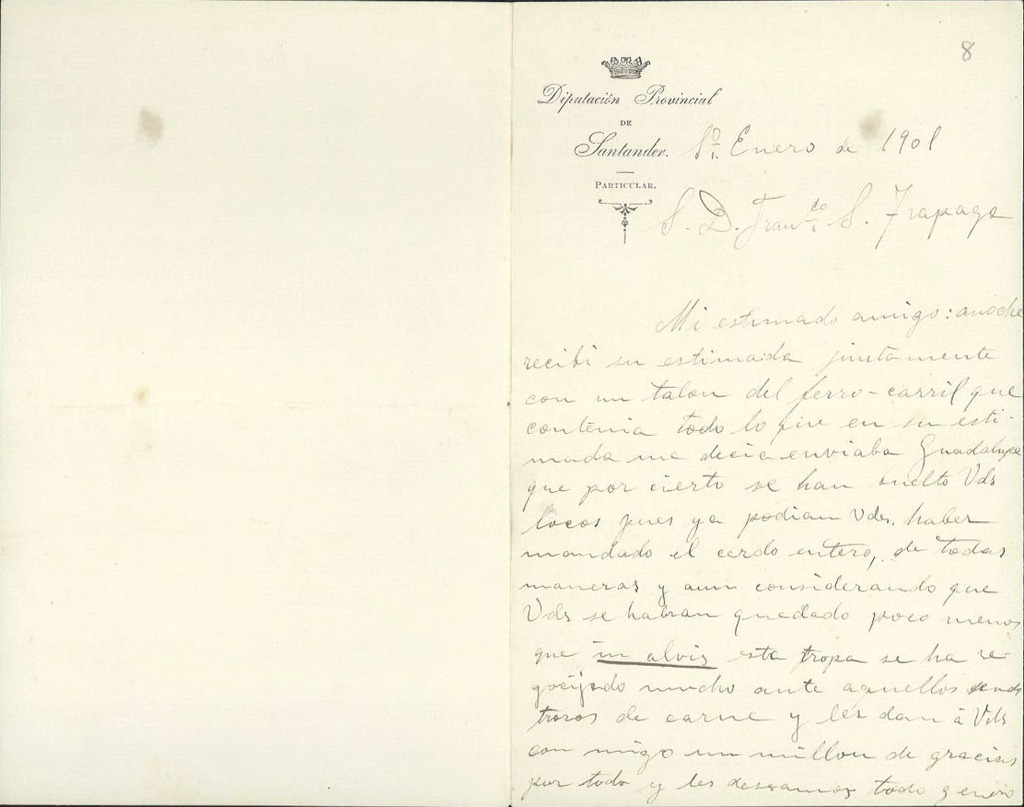 8
Diputación Provincial
DE
Santander.
PARTICULAR.
Enero de 1901
S. D. Franco S. Trapaga
Mi estimado amigo: anoche
recibi su estimada juntamente
con un talon del ferro-carril que
contenia todo lo que en su esti-
mada me decia enviaba Guadalupe
que por cierto se han vuelto Vds
locos pues ya podian Vds. haber
mandado el cerdo entero, de todas
maneras y aun considerando que
Vds se habran quedado poco menos
que in alvis esta tropa se ha re-
gocijado mucho ante aquellos
trozos de carne y les dan á Vds
con migo un millon de gracias
por todo y les deseamos todo